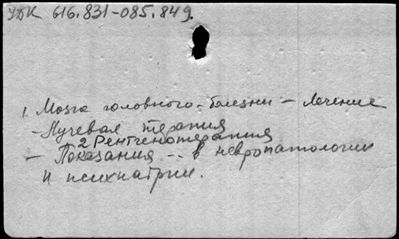 УДК 616.831-085.849.
1. Мозга головного - болезни - Лечение
- Лучевая терапия
2 Рентгенотерапия
- Показания .. в невропатологии
и психиатрии.